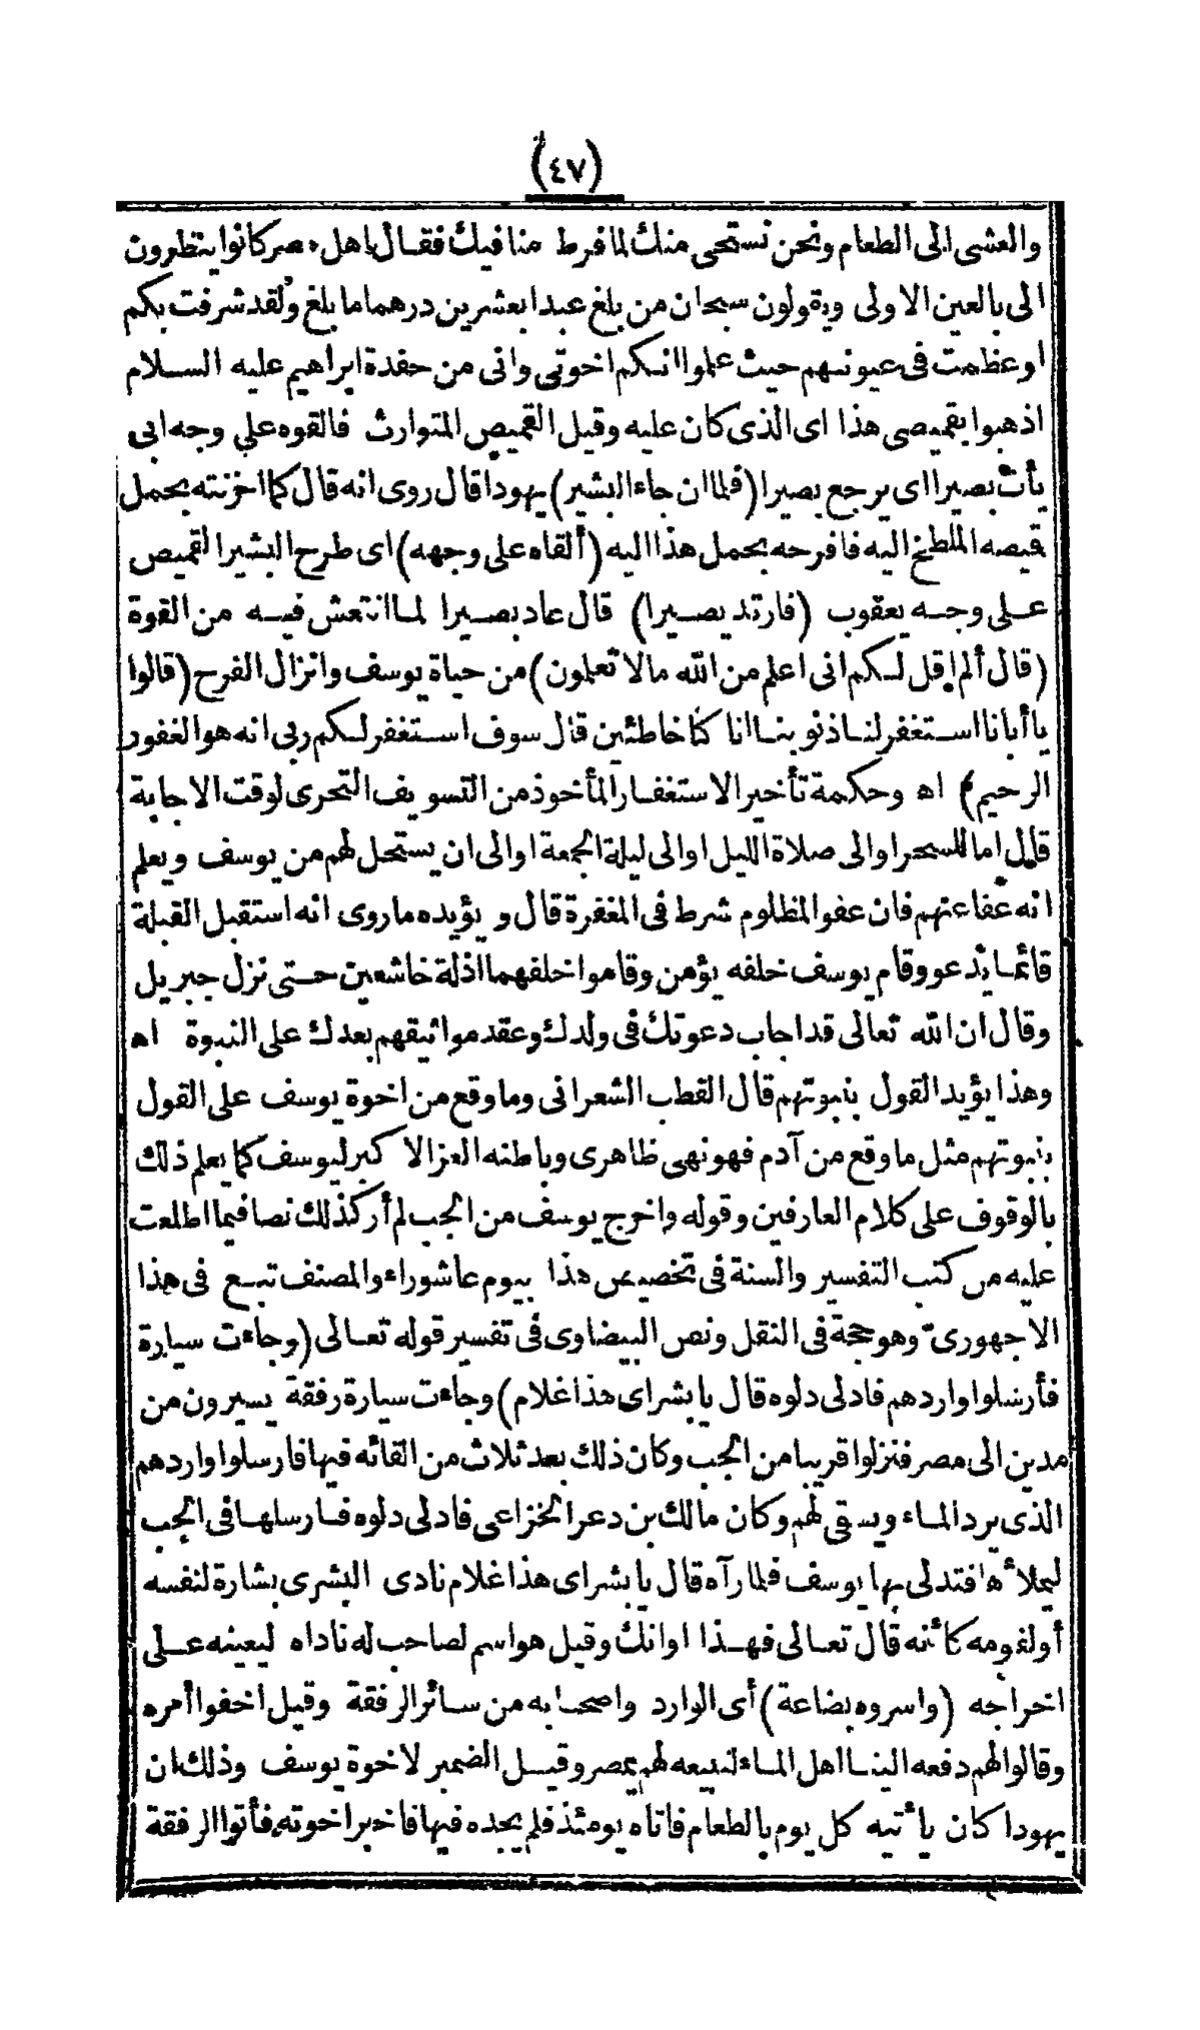 (٤٧)
والعشى الى الطعام ونحن نستحى منك لما فرط منا فيك فقال اهل مصر كانوا ينظرون
الى بالعين الاولى ويقولون سبحان من بلغ عبدا بعشرين درهما ما بلغ ولقد شرفت بكم
اوعظمت فى عيونهم حيث علموا انكم اخوتى وانى من حفدة ابراهيم عليه السلام
اذهبوا بقميصى هذا اى الذى كان عليه وقيل القميص المتوارث فالقوه على وجه ابى
يأت بصيرا اى يرجع بصيرا (فلما ان جاء البشير) يهودا قال روى انه قال كما احزنته بحمل
قميصه الملطخ اليه فافرحه بحمل هذا اليه (ألقاه على وجهه) اى طرح البشير القميص
على وجه يعقوب (فارتد بصيرا) قال عاد بصيرا لما انتعش فيه من القوة
(قال ألم اقل لكم انى اعلم من الله مالا تعلمون) من حياة يوسف وانزال الفرح (قالوا
يا أبانا استغفر لنا ذنوبنا انا كنا خاطئين قال سوف استغفر لكم ربى انه هو الغفور
الرحيم) اه وحكمة تأخير الاستغفار المأخوذ من التسويف التحرى لوقت الاجابة
قال اما للسحر او الى صلاة الليل او الى ليلة الجمعة او الى ان يستحل لهم من يوسف ويعلم
انه عفا عنهم فان عفو المظلوم شرط فى المغفرة قال ويؤيده ما روى انه استقبل القبلة
قائما يدعو وقام يوسف خلفه يؤمن وقاموا خلفهما اذلة خاشعين حتى نزل جبريل
وقال ان الله تعالى قد اجاب دعوتك فى ولدك وعقد مواثيقهم بعدك على النبوة اه
وهذا يؤيد القول بنبوتهم قال القطب الشعرانى وما وقع من اخوة يوسف على القول
بنبوتهم مثل ما وقع من آدم فهو نهى ظاهرى وباطنه العز الاكبر ليوسف كما يعلم ذلك
بالوقوف على كلام العارفين وقوله واخرج يوسف من الجب لم أر كذلك نصا فيما اطلعت
عليه من كتب التفسير والسنة فى تخصيص هذا بيوم عاشوراء والمصنف تبع فى هذا
الاجهورى وهو حجة فى النقل ونص البيضاوى فى تفسير قوله تعالى (وجاءت سيارة
فأرسلوا واردهم فادلى دلوه قال يا بشراى هذا غلام) وجاءت سيارة رفقة يسيرون من
مدين الى مصر فنزلوا قريبا من الجب وكان ذلك بعد ثلاث من القائه فيها فارسلوا واردهم
الذى يرد الماء ويستقى لهم وكان مالك بن دعر الخزاعى فادلى دلوه فارسلها فى الجب
ليملأها فتدلى بها يوسف فلما رآه قال يا بشراى هذا غلام نادى البشرى بشارة لنفسه
أو لقومه كأنه قال تعالى فهذا اوانك وقيل هو اسم لصاحب له ناداه ليعينه على
اخراجه (واسروه بضاعة) أى الوارد واصحابه من سائر الرفقة وقيل اخفوا أمره
وقالوا لهم دفعه الينا اهل الماء لنبيعه لهم بمصر وقيل الضمير لاخوة يوسف وذلك ان
يهودا كان يأتيه كل يوم بالطعام فاتاه يومئذ فلم يجده فيها فاخبر اخوته فأتوا الرفقة